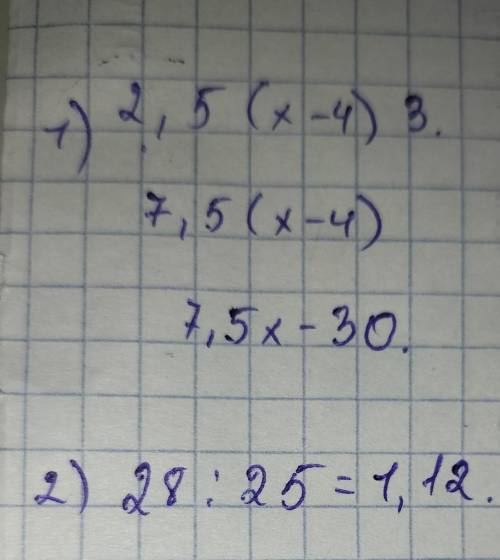 1) 2,5 (x-4) 3.
7,5(x-4)
7,5x-30.
2) 28:25=1,12.